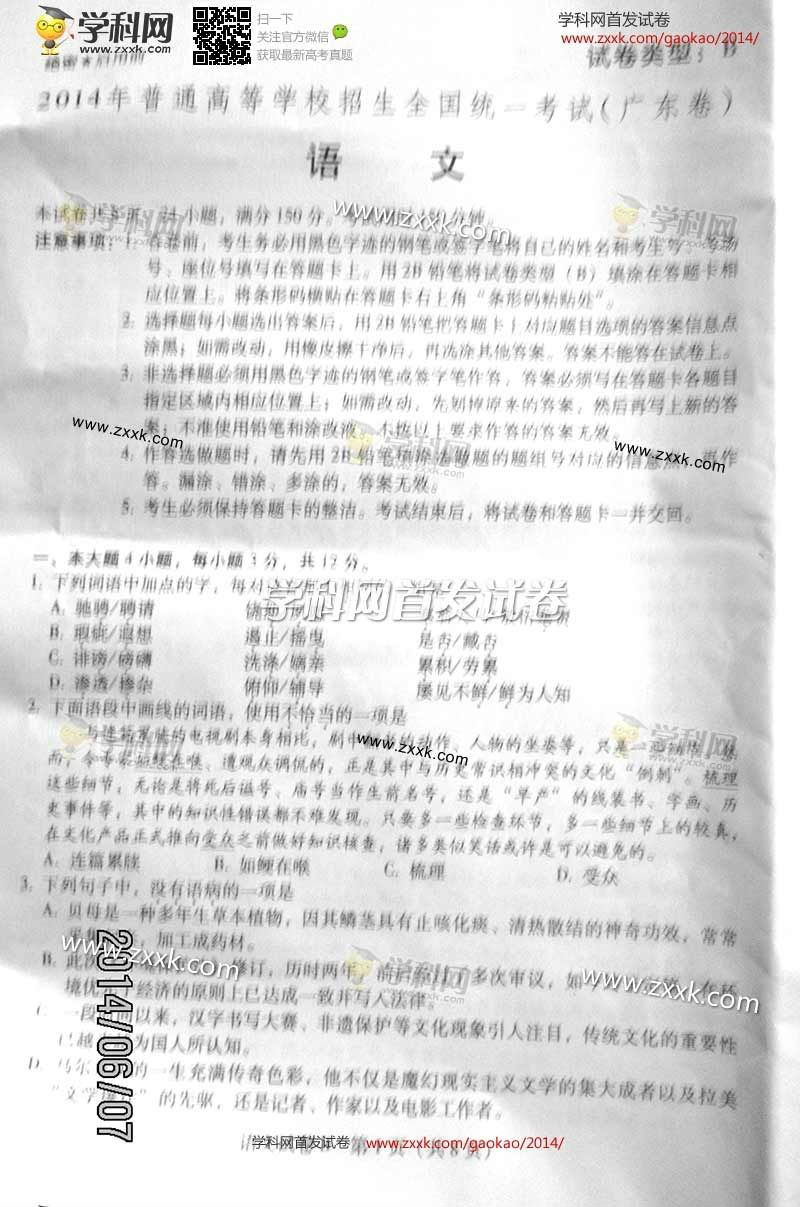 学科网
www.zxxk.com
扫一下
关注官方微信
获取最新高考真题
学科网首发试卷
www.zxxk.com/gaokao/2014/
绝密★启用前
试卷类型：B
2014年普通高等学校招生全国统一考试(广东卷)
语 文
本试卷共8页，24小题，满分150分。
www.zxxk.com
学科网
学科网
注意事项：1. 答卷前，考生务必用黑色字迹的钢笔或签字笔将自己的姓名和考生号、考场
号、座位号填写在答题卡上。用2B铅笔将试卷类型（B）填涂在答题卡相
应位置上。将条形码横贴在答题卡右上角“条形码粘贴处”。
2. 选择题每小题选出答案后，用2B铅笔把答题卡上对应题目选项的答案信息点
涂黑；如需改动，用橡皮擦干净后，再选涂其他答案。答案不能答在试卷上。
3. 非选择题必须用黑色字迹的钢笔或签字笔作答，答案必须写在答题卡各题目
指定区域内相应位置上；如需改动，先划掉原来的答案，然后再写上新的答
案；不准使用铅笔和涂改液。不按以上要求作答的答案无效。
www.zxxk.com
www.zxxk.com
4. 作答选做题时，请先用2B铅笔填涂选做题的题组号对应的信息点，再作
答。漏涂、错涂、多涂的，答案无效。
5. 考生必须保持答题卡的整洁。考试结束后，将试卷和答题卡一并交回。
一、本大题4小题，每小题3分，共12分。
1. 下列词语中加点的字，每对
学科网首发试卷
A. 驰骋/聘请
B. 瑕疵/遐想 遏止/摇曳 是否/臧否
C. 诽谤/磅礴 洗涤/嫡亲 累积/劳累
D. 渗透/掺杂 俯仰/辅导 屡见不鲜/鲜为人知
2. 下面语段中画线的词语，使用不恰当的一项是
与连篇累牍的电视剧本身相比，剧中 的动作、人物的坐姿等，只是一些细节，然
www.zxxk.com
而，令专家如鲠在喉、遭观众调侃的，正是其中与历史常识相冲突的文化“倒刺”。梳理
这些细节，无论是将死后谥号、庙号当作生前名号，还是“早产”的线装书、字画、历
史事件等，其中的知识性错误都不难发现。只要多一些检查环节，多一些细节上的较真，
在文化产品正式推向受众之前做好知识核查，诸多类似笑话或许是可以避免的。
A. 连篇累牍 B. 如鲠在喉 C. 梳理 D. 受众
3. 下列句子中，没有语病的一项是
A. 贝母是一种多年生草本植物，因其鳞茎具有止咳化痰、清热散结的神奇功效，常常
，加工成药材。
www.zxxk.com
学科网
www.zxxk.com
B. 此次 修订，历时两年， 多次审议，如
境优 经济的原则上已达成一致并写入法律。
C. 一段时间以来，汉字书写大赛、非遗保护等文化现象引人注目，传统文化的重要性
已越 为国人所认知。
D. 马尔 的一生充满传奇色彩，他不仅是魔幻现实主义文学的集大成者以及拉美
“文学爆炸”的先驱，还是记者、作家以及电影工作者。
2014/06/07
学科网首发试卷
www.zxxk.com/gaokao/2014/
第1页（共8页）